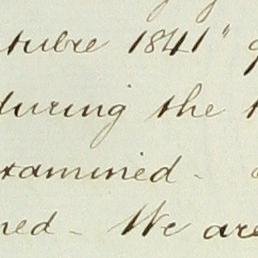 ctubre 1841"
during the t
xamined -
ned - We are